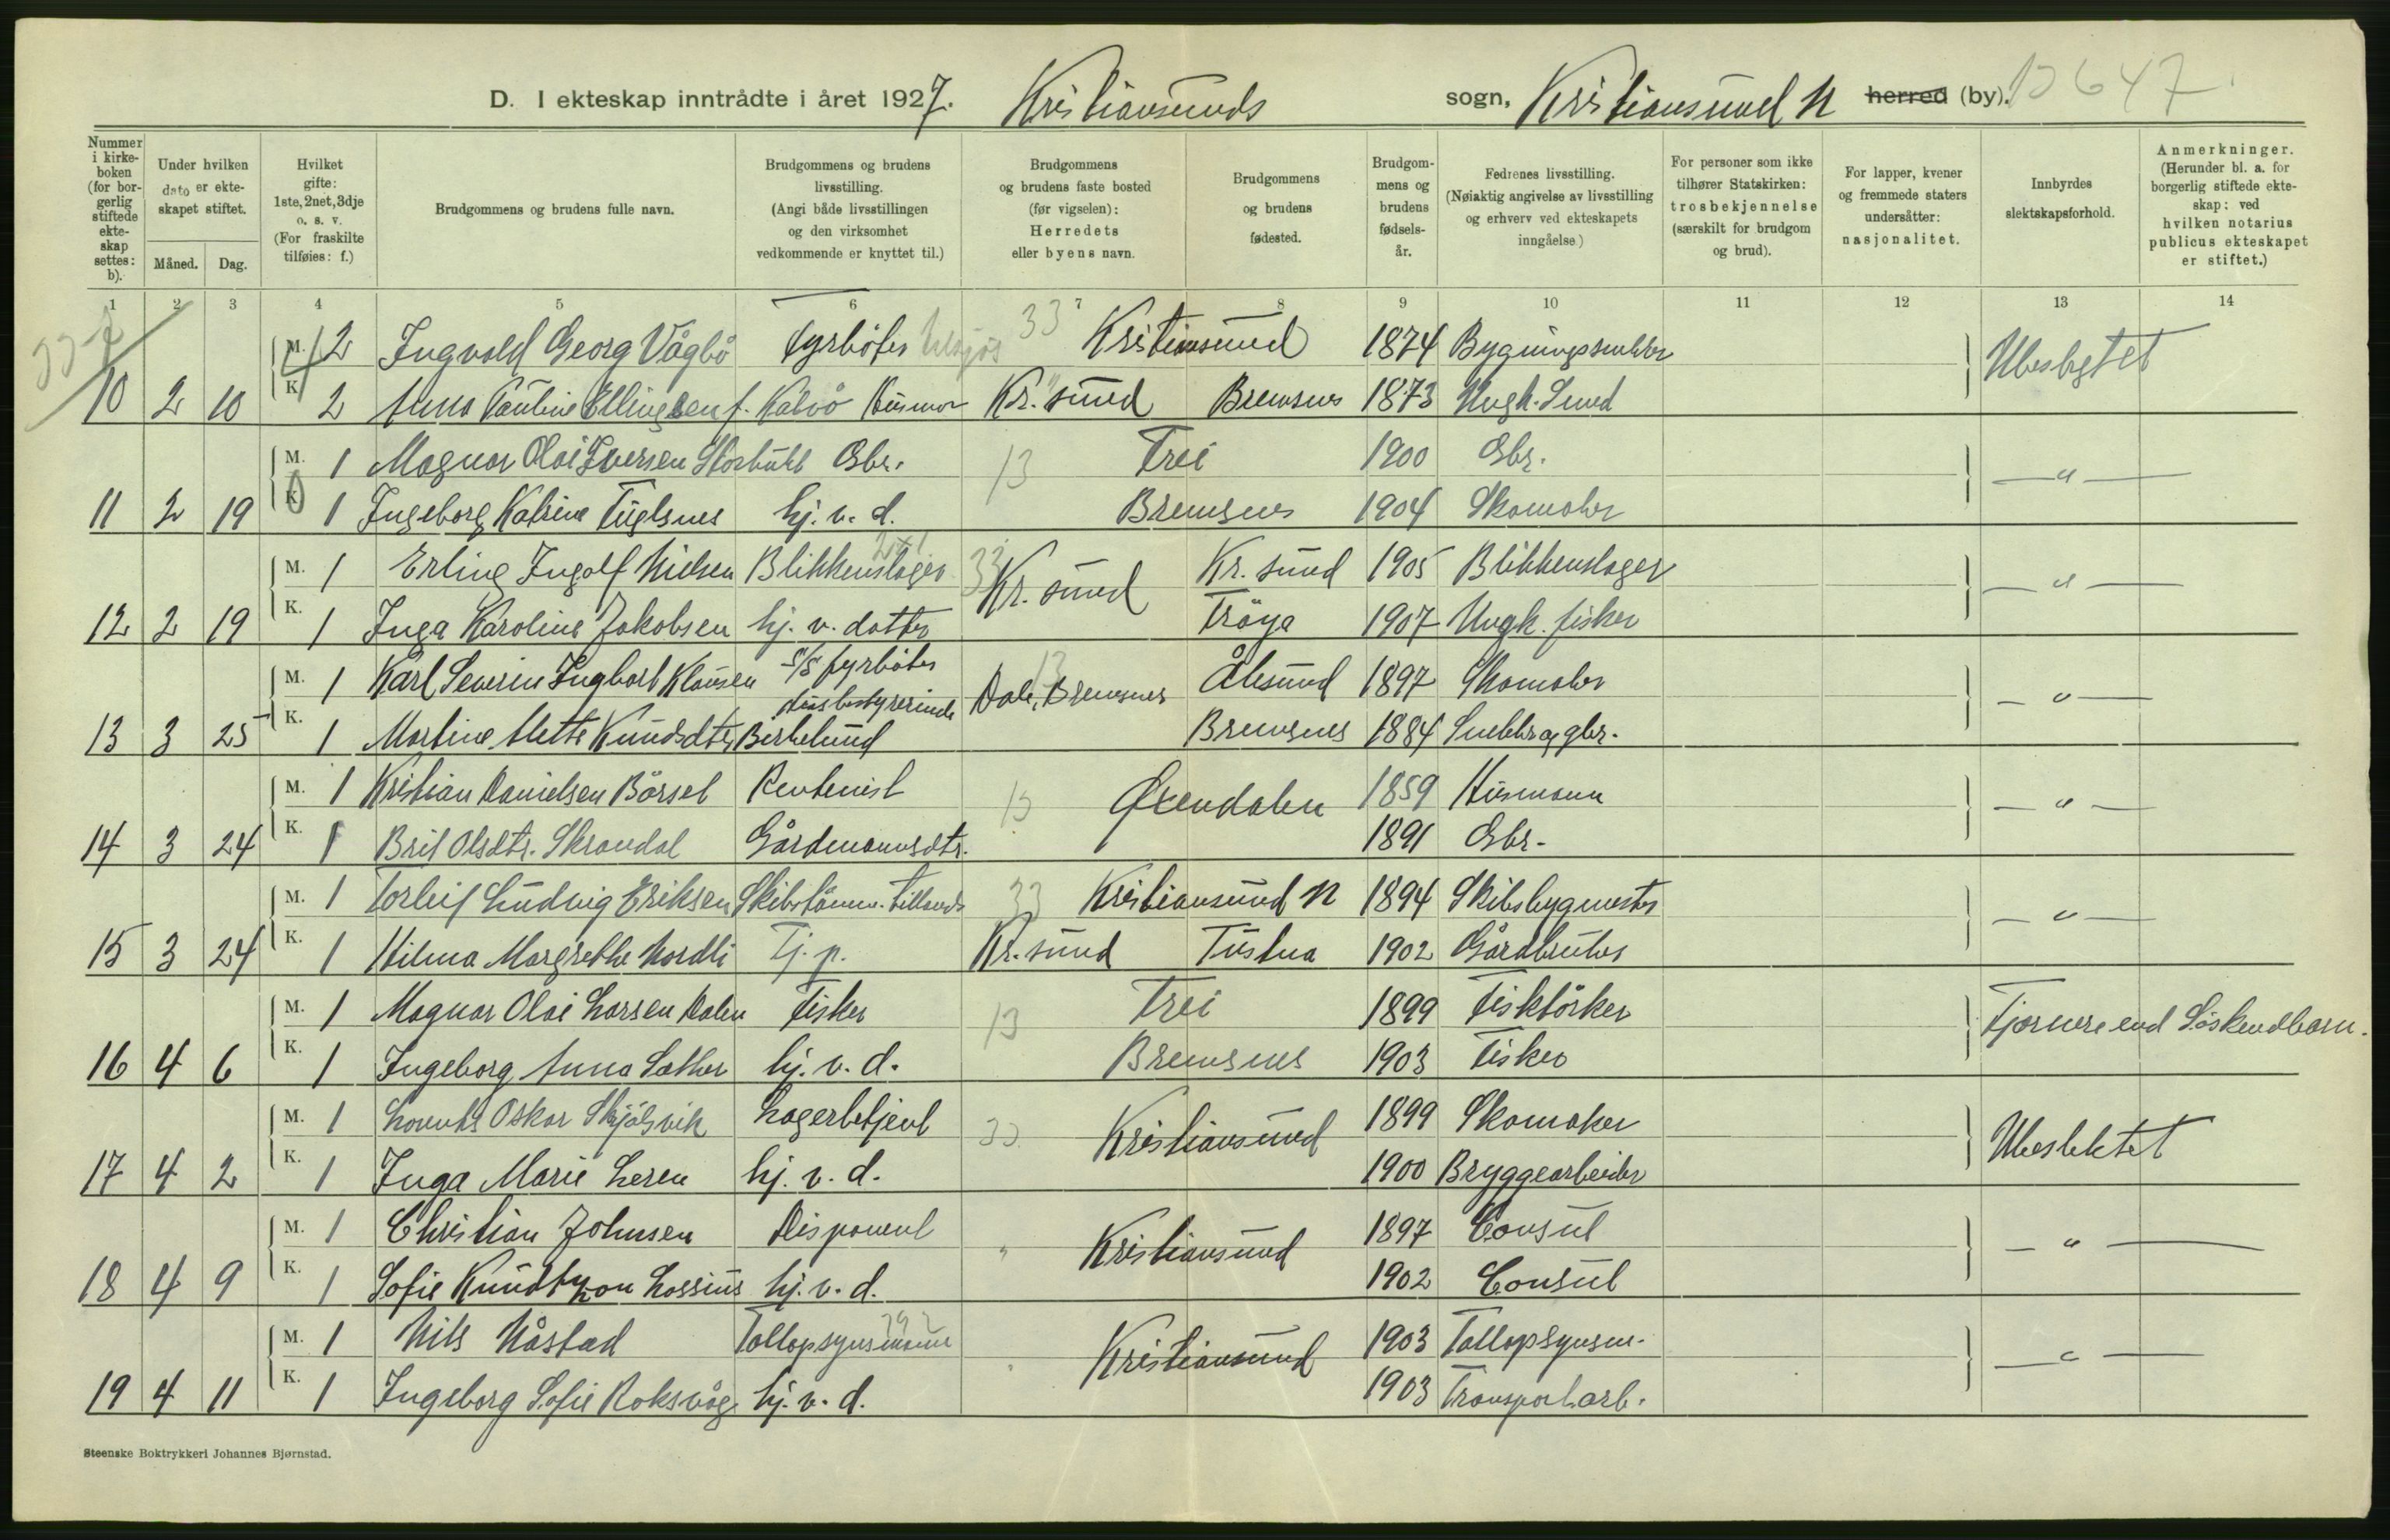 D. I ekteskap inntrådte i året 1927. Kristiansunds sogn, Kristiansund N herred (by).
Nummer i kirkeboken (for borgerlig stiftede ekteskap settes: b).
Under hvilken dato er ekteskapet stiftet.
Måned. Dag.
Hvilket gifte: 1ste, 2net, 3dje o. s. v. (For fraskilte tilføies: f.)
Brudgommens og brudens fulle navn.
Brudgommens og brudens livsstilling. (Angi både livsstillingen og den virksomhet vedkommende er knyttet til.)
Brudgommens og brudens faste bosted (før vigselen): Herredets eller byens navn.
Brudgommens og brudens fødested.
Brudgommens og brudens fødselsår.
Fedrenes livsstilling. (Nøiaktig angivelse av livsstilling og erhverv ved ekteskapets inngåelse.)
For personer som ikke tilhører Statskirken: trosbekjennelse (særskilt for brudgom og brud).
For lapper, kvener og fremmede staters undersåtter: nasjonalitet.
Innbyrdes slektskapsforhold.
Anmerkninger. (Herunder bl. a. for borgerlig stiftede ekteskap: ved hvilken notarius publicus ekteskapet er stiftet.)
1 2 3 4 5 6 7 8 9 10 11 12 13 14
M. 2 Ingvald Georg Vågbö fyrböter 33 Kristiansund 1874 Bygningssnekker Ubeslegtet
10 2 10 K. 2 Anna Pauline Ellingsen f. Kalvö Husmor Kr. sund Bremsnes 1873 Ungk. Smed
M. 1 Magnar Olai Iversen Storbukt Gbr. 13 Trei 1900 Gbr. — " —
11 2 19 K. 1 Ingeborg Katrine Fuglsnes hj. v. d. Bremsnes 1904 Skomaker
M. 1 Erling Ingolf Nielsen Blikkenslager 33 Kr. sund Kr. sund 1905 Blikkenslager — " —
12 2 19 K. 1 Inga Karoline Jakobsen hj. v. datter Tröya 1907 Ungk. fisker
M. 1 Karl Severin Ingbart Klausen S/S fyrböter 13 Dale, Bremsnes Ålesund 1897 Skomaker — " —
13 3 25 K. 1 Martine Mette Knudsdtr. Birkelund Husbestyrerinde Bremsnes 1884 Snekker og gbr.
M. 1 Kristian Danielsen Börset Rentenist 15 Øxendalen 1859 Husmann — " —
14 3 24 K. 1 Brit Olsdtr. Skrondal Gårdmannsdtr. 1891 Gbr.
M. 1 Torleif Ludvig Eriksen Skibstömm. tillands 33 Kristiansund N 1894 Skibsbygmester — " —
15 3 24 K. 1 Hilma Margrethe Nordli Tj. p. Kr. sund Tustna 1902 Gårdbruker
M. 1 Magnar Olai Larsen Dalen Fisker 13 Trei 1899 Fisktörker Fjernere end Söskendbarn.
16 4 6 K. 1 Ingeborg Anna Sæther hj. v. d. Bremsnes 1903 Fisker
M. 1 Lorents Oskar Skjölsvik Lagerbetjent 33 Kristiansund 1899 Skomaker Ubeslektet
17 4 2 K. 1 Inga Marie Leren hj. v. d. 1900 Bryggearbeider
M. 1 Christian Johnsen Disponent " Kristiansund 1897 Consul — " —
18 4 9 K. 1 Sofie Knudtzon Lossius hj. v. d. 1902 Consul
M. 1 Nils Nåstad Tollopsynsmann Kristiansund 1903 Tollopsynsm. — " —
19 4 11 K. 1 Ingeborg Sofie Roksvåg hj. v. d. 1903 Transportarb.
Steenske Boktrykkeri Johannes Bjørnstad.